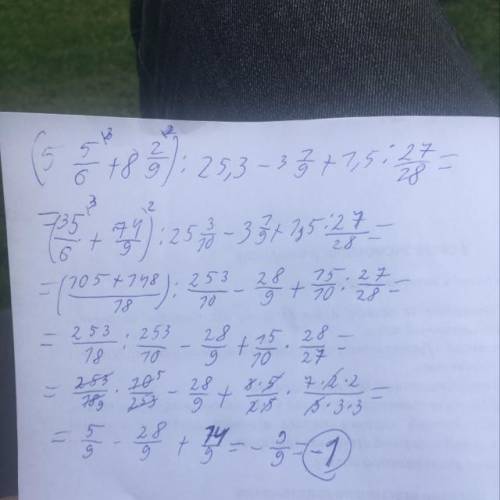 (5 5/6 \3 + 8 2/9 \2) : 25,3 - 3 7/9 + 1,5 : 27/28 =
= (35/6 \3 + 74/9 \2) : 25 3/10 - 3 7/9 + 1,5 : 27/28 =
= (105+148/18) : 253/10 - 28/9 + 15/10 : 27/28 =
= 253/18 : 253/10 - 28/9 + 15/10 · 28/27 =
= 253/18 9 · 10 5/253 - 28/9 + 3·5/2·5 · 7·2·2/3·3·3 =
= 5/9 - 28/9 + 14/9 = - 9/9 = -1